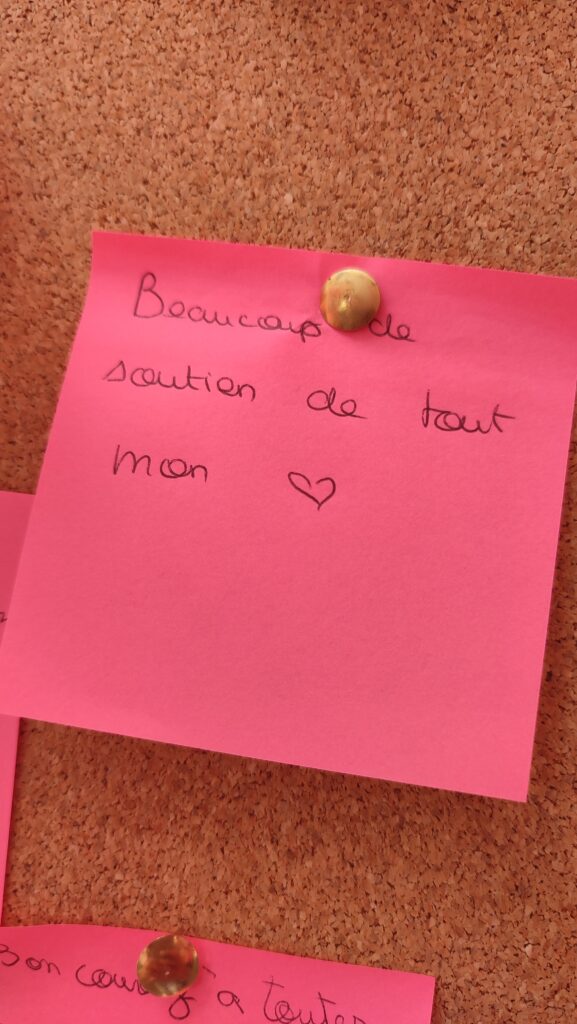 Beaucoup de
soutien de tout
mon ♡
Bon à toutes